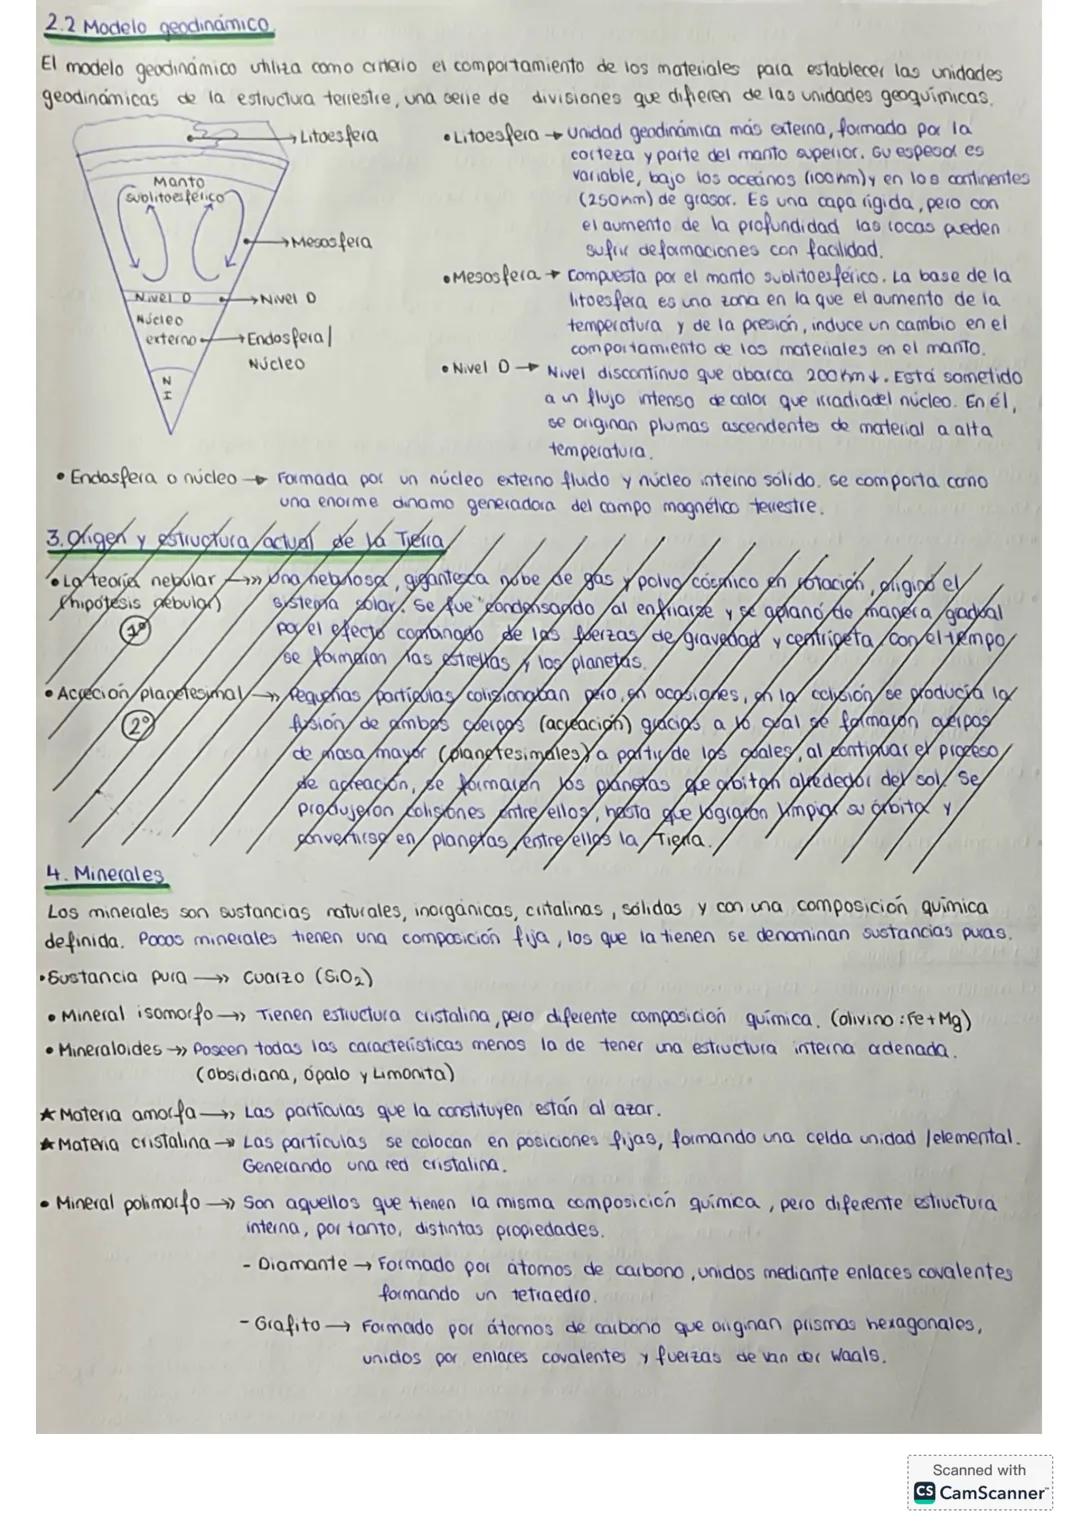 2.2 Modelo geodinámico.
El modelo geodinámico utiliza como criterio el comportamiento de los materiales para establecer las unidades
geodinámicas de la estructura terrestre, una serie de divisiones que difieren de las unidades geoquímicas.
Litoesfera
Manto
sublitoesférico
Mesosfera
Nivel D
Nivel D
Núcleo
externo
Endosfera/
Núcleo
N
I
• Litoesfera → Unidad geodinámica más externa, formada por la
corteza y parte del manto superior. Su espesor es
variable, bajo los oceános (100km) y en los continentes
(250km) de grosor. Es una capa rígida, pero con
el aumento de la profundidad las rocas pueden
sufrir deformaciones con facilidad.
• Mesosfera → Compuesta por el manto sublitoesférico. La base de la
litoesfera es una zona en la que el aumento de la
temperatura y de la presión, induce un cambio en el
comportamiento de los materiales en el manto.
• Nivel D → Nivel discontinuo que abarca 200km ↓. Está sometido
a un flujo intenso de calor que irradia del núcleo. En él,
se originan plumas ascendentes de material a alta
temperatura.
• Endosfera o núcleo → Formada por un núcleo externo fluido y núcleo interno sólido. Se comporta como
una enorme dinamo generadora del campo magnético terrestre.
3. Origen y estructura actual de la Tierra
• La teoría nebular →» Una nebulosa, gigantesca nube de gas y polvo cósmico en rotación, originó el
(hipótesis nebular) sistema solar. Se fue condensando al enfriarse y se aplanó de manera gadual
1º por el efecto combinado de las fuerzas de gravedad y centrípeta, con el tiempo
se formaron las estrellas y los planetas.
• Acreción planetesimal →» Pequeñas partículas colisionaban pero, en ocasiones, en la colisión se producía la
2º fusión de ambos cuerpos (acreación) gracias a lo cual se formaron cuerpos
de masa mayor (planetesimales) a partir de los cuales, al continuar el proceso
de acreación, se formaron los planetas que orbitan alrededor del sol. Se
produjeron colisiones entre ellos, hasta que lograron limpiar su órbita y
convertirse en planetas, entre ellos la Tierra.
4. Minerales
Los minerales son sustancias naturales, inorgánicas, cristalinas, sólidas y con una composición química
definida. Pocos minerales tienen una composición fija, los que la tienen se denominan sustancias puras.
• Sustancia pura →» Cuarzo (SiO₂)
• Mineral isomorfo →» Tienen estructura cristalina, pero diferente composición química. (olivino: Fe + Mg)
• Mineraloides →» Poseen todas las características menos la de tener una estructura interna ordenada.
(Obsidiana, Ópalo y Limonita)
★ Materia amorfa →» Las partículas que la constituyen están al azar.
★ Materia cristalina →» Las partículas se colocan en posiciones fijas, formando una celda unidad /elemental.
Generando una red cristalina.
• Mineral polimorfo →» Son aquellos que tienen la misma composición química, pero diferente estructura
interna, por tanto, distintas propiedades.
- Diamante → Formado por átomos de carbono, unidos mediante enlaces covalentes
formando un tetraedro.
- Grafito → Formado por átomos de carbono que originan prismas hexagonales,
unidos por enlaces covalentes y fuerzas de van der Waals.
Scanned with
CS CamScanner